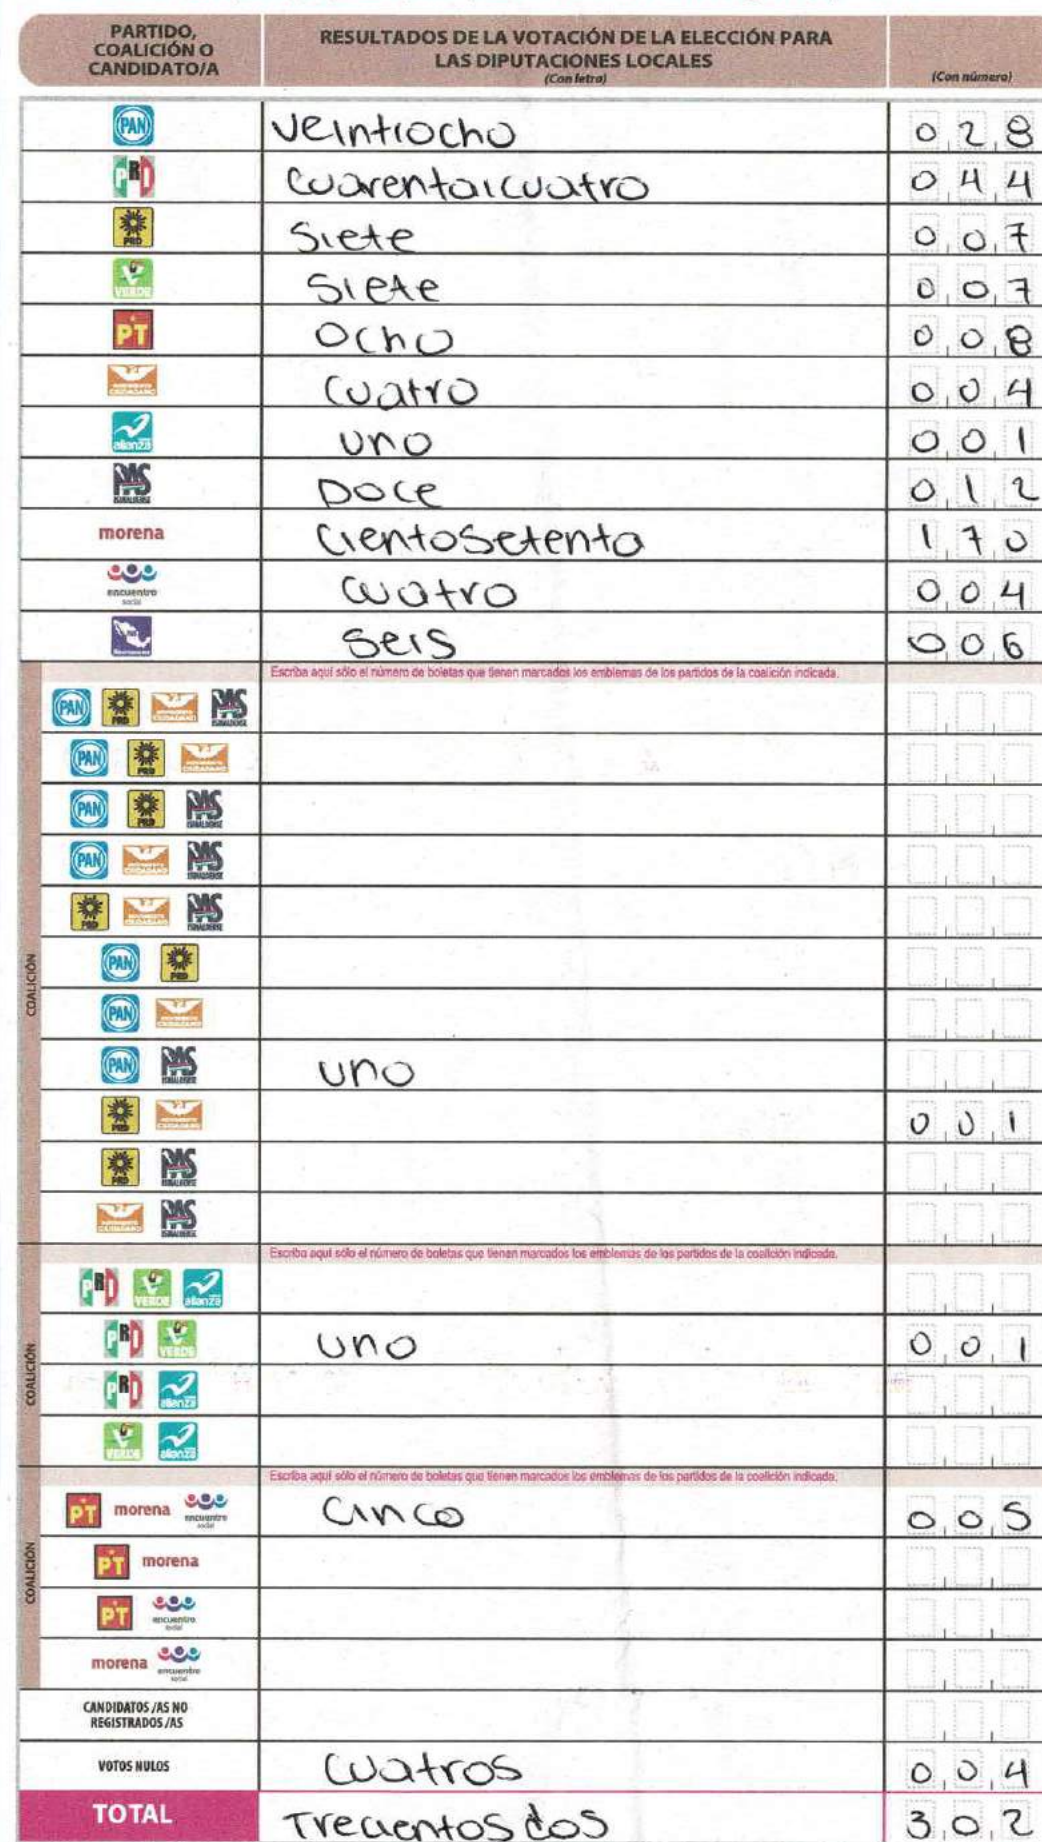 PARTIDO, COALICIÓN O CANDIDATO/A
RESULTADOS DE LA VOTACIÓN DE LA ELECCIÓN PARA LAS DIPUTACIONES LOCALES
(Con letra)
(Con número)
PAN Veintiocho 028
PRI Cuarentaicuatro 044
PRD Siete 007
VERDE Siete 007
PT Ocho 008
CIUDADANO Cuatro 004
alianza uno 001
PAS Doce 012
morena CientoSetenta 170
encuentro social Cuatro 004
Seis 006
Escriba aquí sólo el número de boletas que tienen marcados los emblemas de los partidos de la coalición indicada.
COALICIÓN
PAN PRD CIUDADANO PAS
PAN PRD CIUDADANO
PAN PRD PAS
PAN CIUDADANO PAS
PRD CIUDADANO PAS
PAN PRD
PAN CIUDADANO
PAN PAS uno
PRD CIUDADANO 001
PRD PAS
CIUDADANO PAS
Escriba aquí sólo el número de boletas que tienen marcados los emblemas de los partidos de la coalición indicada.
COALICIÓN
PRI VERDE alianza
PRI VERDE uno 001
PRI alianza
VERDE alianza
Escriba aquí sólo el número de boletas que tienen marcados los emblemas de los partidos de la coalición indicada.
COALICIÓN
PT morena encuentro social Cinco 005
PT morena
PT encuentro social
morena encuentro social
CANDIDATOS /AS NO REGISTRADOS /AS
VOTOS NULOS Cuatros 004
TOTAL Trecientos dos 302